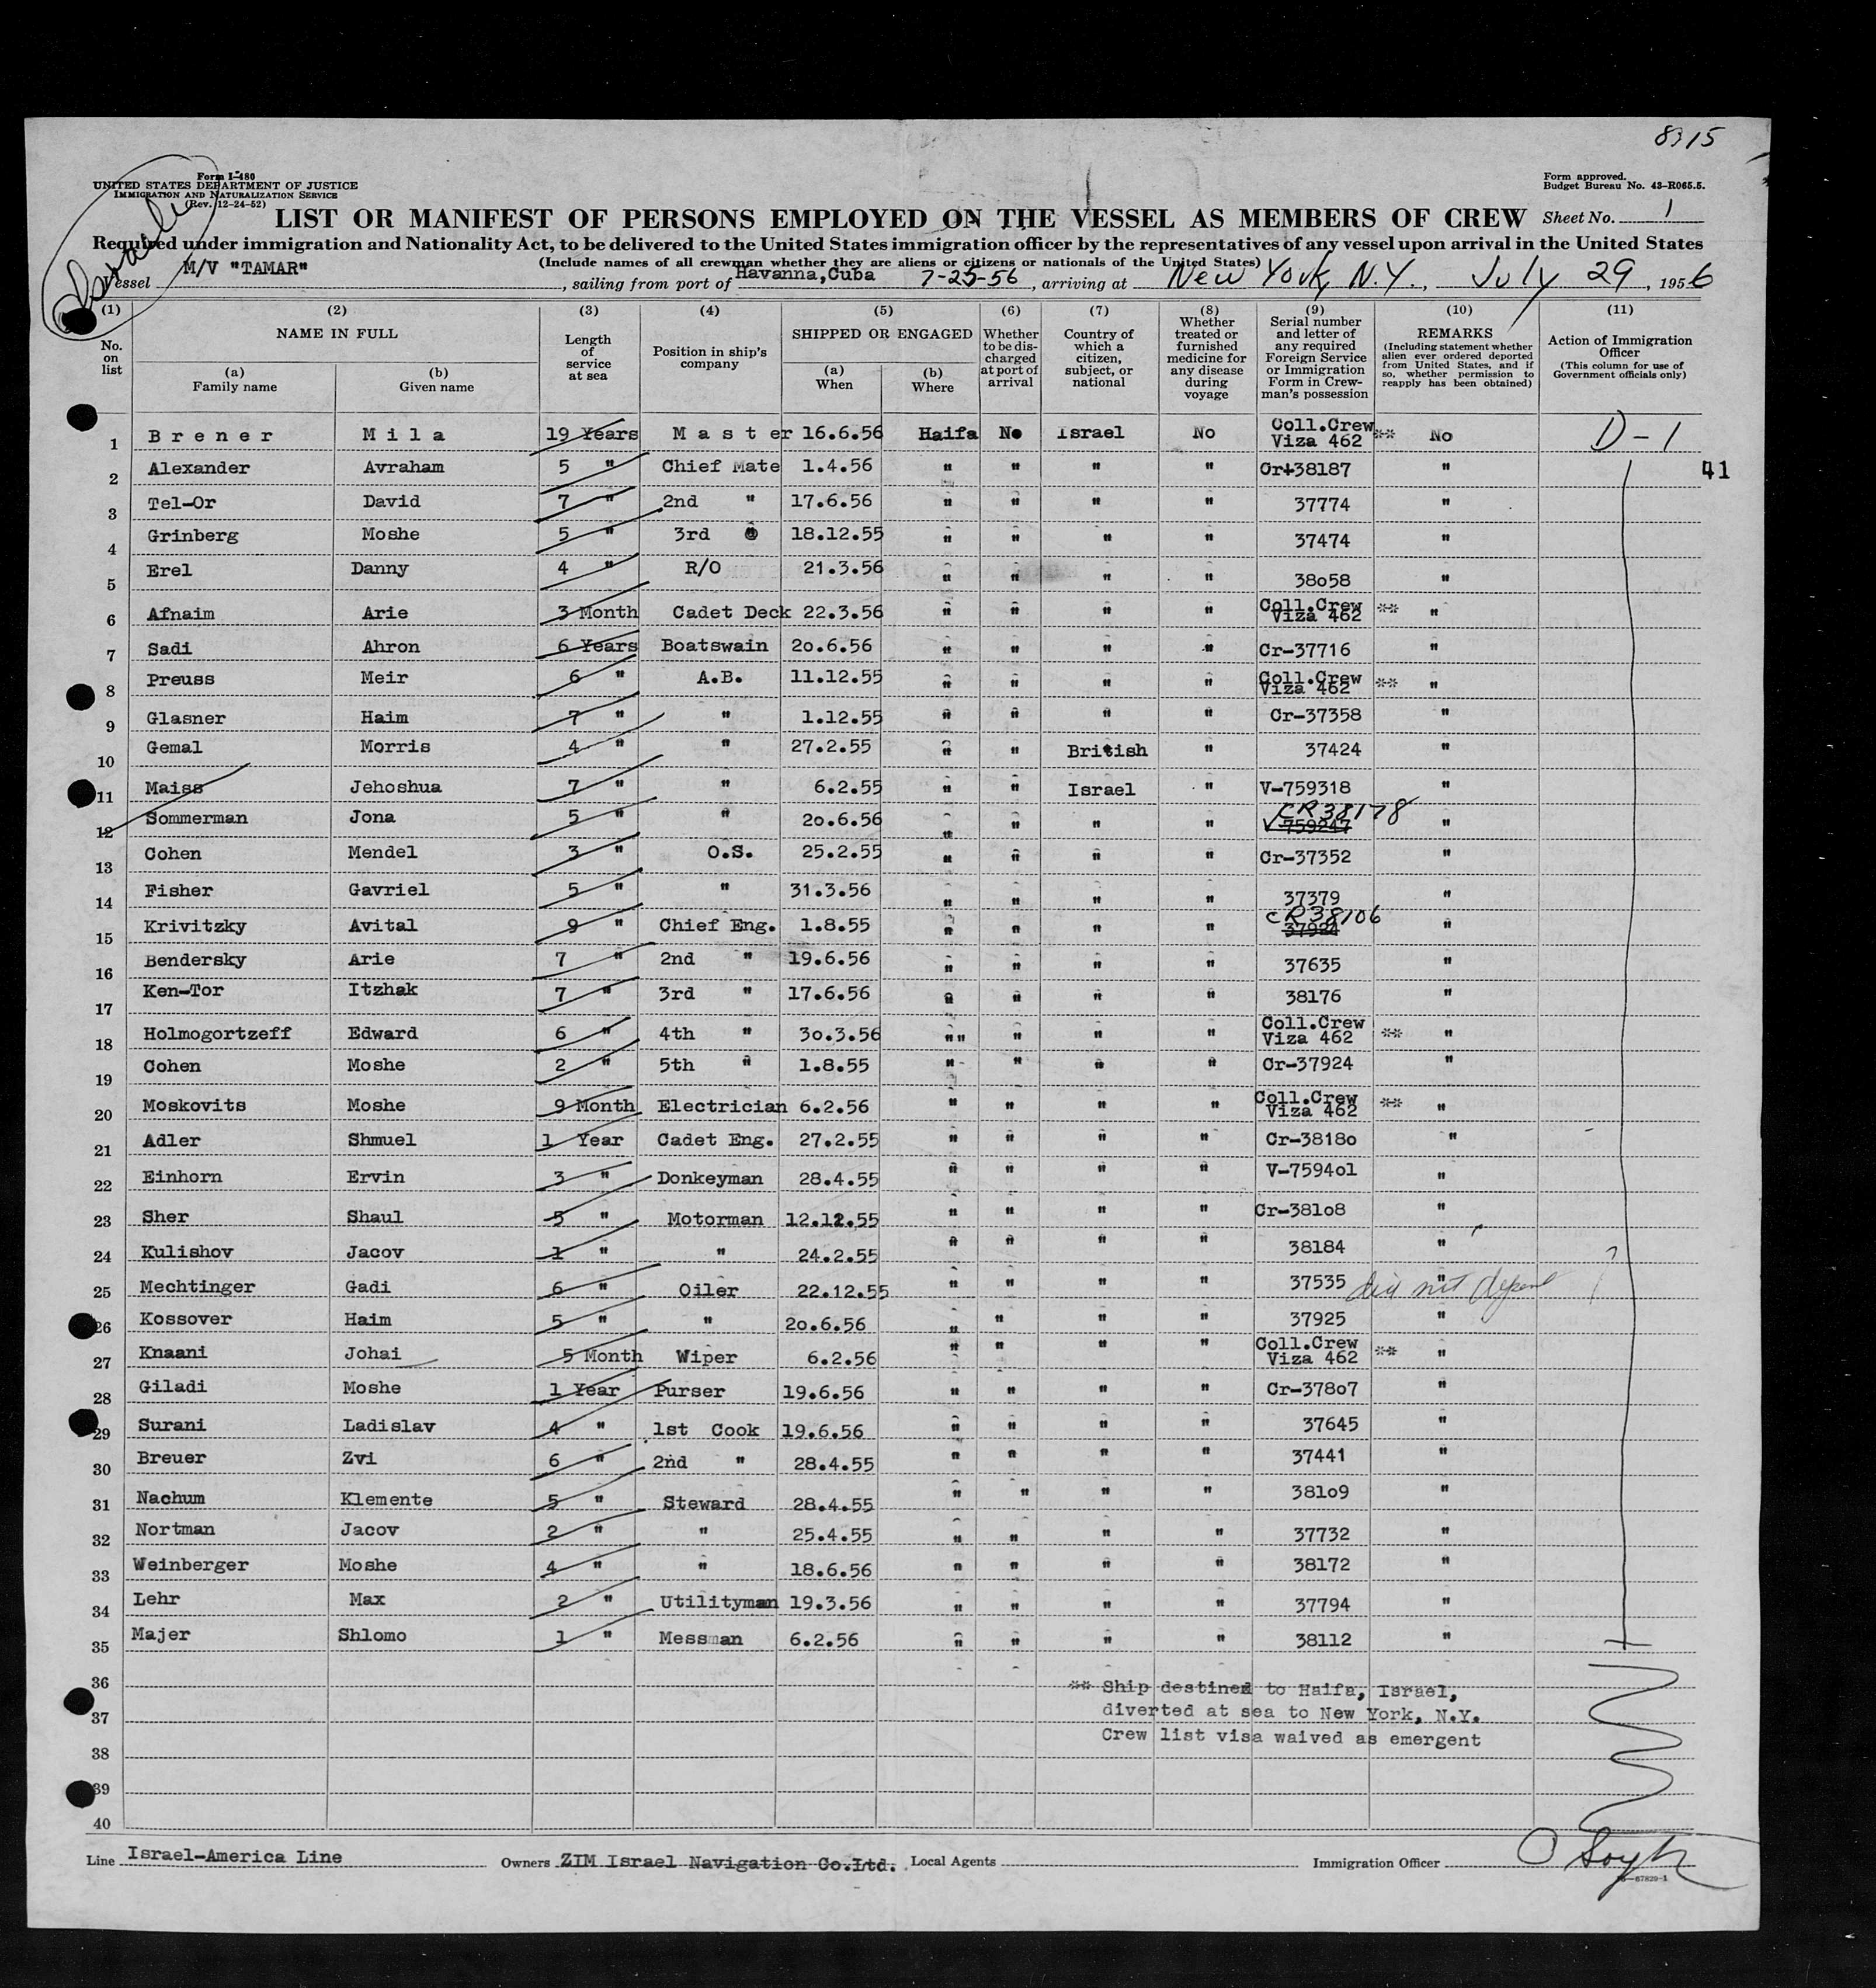 8315
Form I-480
UNITED STATES DEPARTMENT OF JUSTICE
IMMIGRATION AND NATURALIZATION SERVICE
(Rev. 12-24-52)
Form approved.
Budget Bureau No. 43-R065.5.
LIST OR MANIFEST OF PERSONS EMPLOYED ON THE VESSEL AS MEMBERS OF CREW Sheet No. 1
Required under immigration and Nationality Act, to be delivered to the United States immigration officer by the representatives of any vessel upon arrival in the United States
(Include names of all crewman whether they are aliens or citizens or nationals of the United States)
Vessel M/V "TAMAR", sailing from port of Havanna,Cuba 7-25-56, arriving at New York, N.Y., July 29, 1956
(1) (2) (3) (4) (5) (6) (7) (8) (9) (10) (11)
No. on list
NAME IN FULL
(a) Family name
(b) Given name
Length of service at sea
Position in ship's company
SHIPPED OR ENGAGED
(a) When
(b) Where
Whether to be discharged at port of arrival
Country of which a citizen, subject, or national
Whether treated or furnished medicine for any disease during voyage
Serial number and letter of any required Foreign Service or Immigration Form in Crewman's possession
REMARKS
(Including statement whether alien ever ordered deported from United States, and if so, whether permission to reapply has been obtained)
Action of Immigration Officer
(This column for use of Government officials only)
1 Brener Mila 19 Years Master 16.6.56 Haifa No Israel No Coll.Crew Viza 462 ** No D-1
2 Alexander Avraham 5 " Chief Mate 1.4.56 " " " " Cr+38187 " 41
3 Tel-Or David 7 " 2nd " 17.6.56 " " " " 37774 "
4 Grinberg Moshe 5 " 3rd " 18.12.55 " " " " 37474 "
5 Erel Danny 4 " R/O 21.3.56 " " " " 38o58 "
6 Afnaim Arie 3 Month Cadet Deck 22.3.56 " " " " Coll.Crew Viza 462 ** "
7 Sadi Ahron 6 Years Boatswain 2o.6.56 " " " " Cr-37716 "
8 Preuss Meir 6 " A.B. 11.12.55 " " " " Coll.Crew Viza 462 ** "
9 Glasner Haim 7 " " 1.12.55 " " " " Cr-37358 "
10 Gemal Morris 4 " " 27.2.55 " " British " 37424 "
11 Maiss Jehoshua 7 " " 6.2.55 " " Israel " V-759318 "
12 Sommerman Jona 5 " " 2o.6.56 " " " " CR 38178 V 759247 "
13 Cohen Mendel 3 " O.S. 25.2.55 " " " " Cr-37352 "
14 Fisher Gavriel 5 " " 31.3.56 " " " " 37379 "
15 Krivitzky Avital 9 " Chief Eng. 1.8.55 " " " " CR 38106 37924 "
16 Bendersky Arie 7 " 2nd " 19.6.56 " " " " 37635 "
17 Ken-Tor Itzhak 7 " 3rd " 17.6.56 " " " " 38176 "
18 Holmogortzeff Edward 6 " 4th " 3o.3.56 "" " " " Coll.Crew Viza 462 ** "
19 Cohen Moshe 2 " 5th " 1.8.55 " " " " Cr-37924 "
20 Moskovits Moshe 9 Month Electrician 6.2.56 " " " " Coll.Crew Viza 462 ** "
21 Adler Shmuel 1 Year Cadet Eng. 27.2.55 " " " " Cr-3818o "
22 Einhorn Ervin 3 " Donkeyman 28.4.55 " " " " V-7594o1 "
23 Sher Shaul 5 " Motorman 12.12.55 " " " " Cr-381o8 "
24 Kulishov Jacov 1 " " 24.2.55 " " " " 38184 "
25 Mechtinger Gadi 6 " Oiler 22.12.55 " " " " 37535 " did not depart
26 Kossover Haim 5 " " 2o.6.56 " " " " 37925 "
27 Knaani Johai 5 Month Wiper 6.2.56 " " " " Coll.Crew Viza 462 ** "
28 Giladi Moshe 1 Year Purser 19.6.56 " " " " Cr-378o7 "
29 Surani Ladislav 4 " 1st Cook 19.6.56 " " " " 37645 "
30 Breuer Zvi 6 " 2nd " 28.4.55 " " " " 37441 "
31 Nachum Klemente 5 " Steward 28.4.55 " " " " 381o9 "
32 Nortman Jacov 2 " " 25.4.55 " " " " 37732 "
33 Weinberger Moshe 4 " " 18.6.56 " " " " 38172 "
34 Lehr Max 2 " Utilityman 19.3.56 " " " " 37794 "
35 Majer Shlomo 1 " Messman 6.2.56 " " " " 38112 "
36
** Ship destined to Haifa, Israel,
37
diverted at sea to New York, N.Y.
Crew list visa waived as emergent
38
39
40
Line Israel-America Line Owners ZIM Israel Navigation Co.Ltd. Local Agents Immigration Officer
16—67829-1